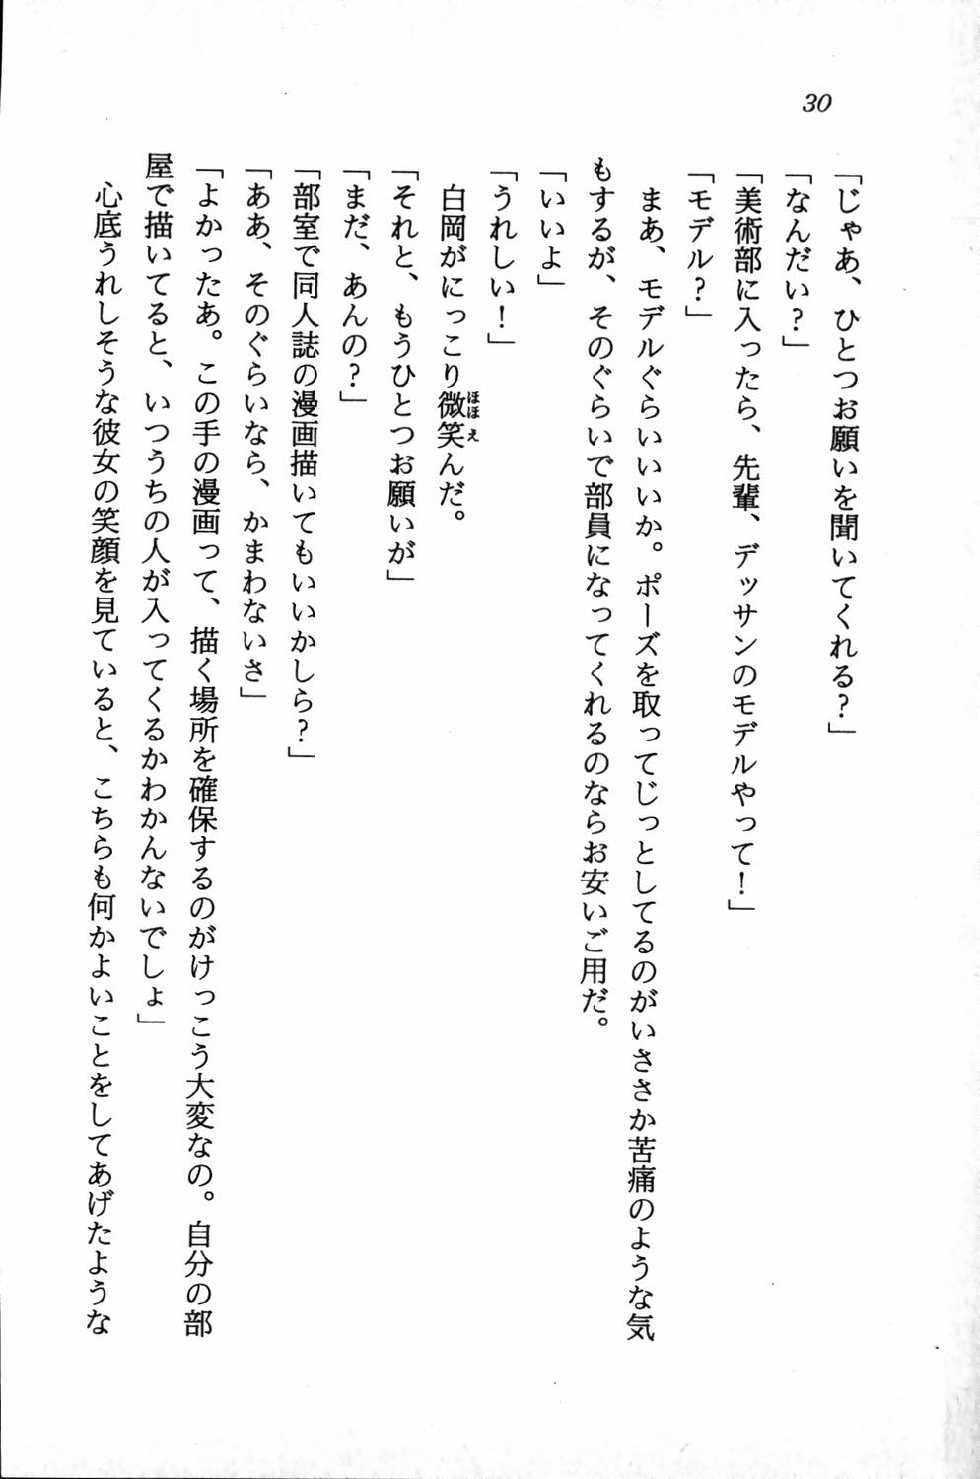 30
「じゃあ、ひとつお願いを聞いてくれる？」
「なんだい？」
「美術部に入ったら、先輩、デッサンのモデルやって！」
「モデル？」
まあ、モデルぐらいいいか。ポーズを取ってじっとしてるのがいささか苦痛のような気
もするが、そのぐらいで部員になってくれるのならお安いご用だ。
「いいよ」
「うれしい！」
白岡がにっこり微笑んだ。
ほほえ
「それと、もうひとつお願いが」
「まだ、あんの？」
「部室で同人誌の漫画描いてもいいかしら？」
「ああ、そのぐらいなら、かまわないさ」
「よかったあ。この手の漫画って、描く場所を確保するのがけっこう大変なの。自分の部
屋で描いてると、いつうちの人が入ってくるかわかんないでしょ」
心底うれしそうな彼女の笑顔を見ていると、こちらも何かよいことをしてあげたような